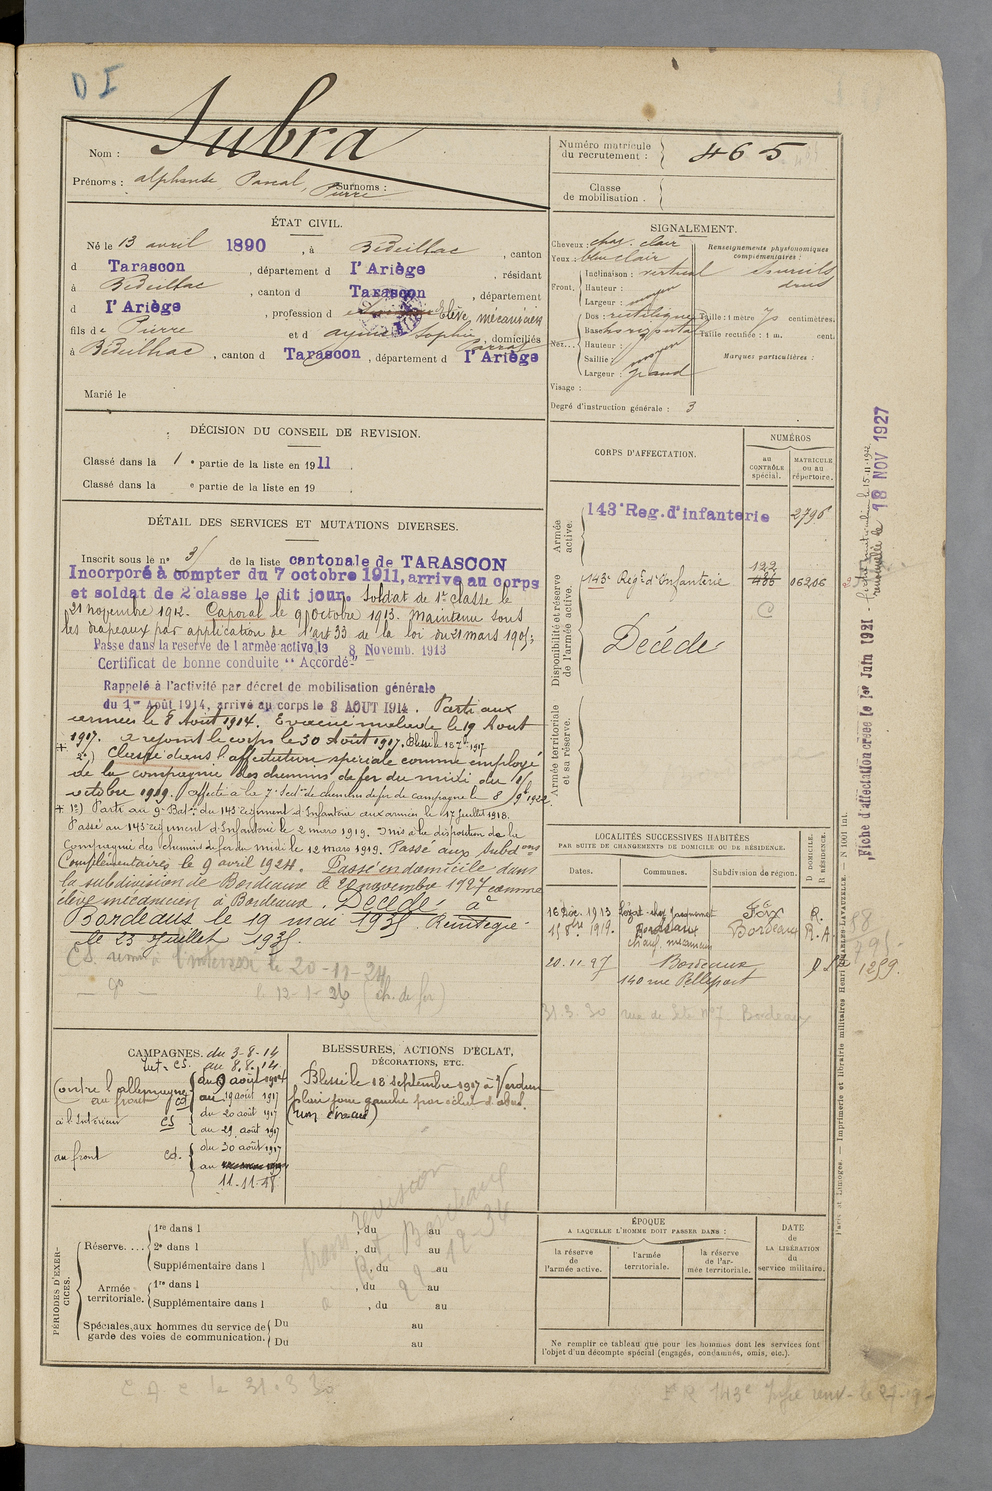 D I
Subra
Nom :
Prénoms : Alphonse Pascal, Pierre
Surnoms :
Numéro matricule du recrutement : 465
Classe de mobilisation .
ÉTAT CIVIL.
Né le 13 avril 1890 , à Bédeilhac , canton
d Tarascon , département d l'Ariège , résidant
à Bédeilhac , canton d Tarascon , département
d l'Ariège , profession d Elève mécanicien
fils de Pierre et d Sophie , domiciliés
à Bédeilhac , canton d Tarascon , département d l'Ariège
Marié le
SIGNALEMENT.
Cheveux : chat. clair
Yeux : bleu clair
Front. Inclinaison : vertical
Hauteur :
Largeur : moyen
Nez... Dos : rectiligne
Base : horizontal
Hauteur :
Saillie : moyen
Largeur : grand
Visage :
Degré d'instruction générale : 3
Renseignements physionomiques complémentaires :
sourcils
drus
Taille : 1 mètre 70 centimètres.
Taille rectifiée : 1 m. cent.
Marques particulières :
DÉCISION DU CONSEIL DE REVISION.
Classé dans la 1 e partie de la liste en 1911 .
Classé dans la e partie de la liste en 19 .
DÉTAIL DES SERVICES ET MUTATIONS DIVERSES.
Inscrit sous le n° 3 de la liste cantonale de TARASCON
Incorporé à compter du 7 octobre 1911, arrivé au corps
et soldat de 2e classe le dit jour. Soldat de 1e classe le
21 novembre 1912. Caporal le 9 octobre 1913. Maintenu sous
les drapeaux par application de l'art 33 de la loi du 21 mars 1905;
Passé dans la réserve de l'armée active le 8 Novemb. 1913
Certificat de bonne conduite "Accordé"
Rappelé à l'activité par décret de mobilisation générale
du 1er Août 1914, arrivé au corps le 3 AOUT 1914 . Parti aux
armées le 8 Août 1914. Evacué malade le 19 Août
1917. a rejoint le corps le 30 Août 1917. Blessé le 18 7bre 1917
+ 2°) Classé dans l'affectation spéciale comme employé
de la compagnie des chemins de fer du midi du
octobre 1919. Affecté à la 7e Sect. de chemins de fer de campagne le 8 9bre 1922
+ 1°) Parti au 9e Baton du 143e régiment d'Infanterie aux armées le 17 juillet 1918.
Passé au 143e régiment d'Infanterie le 2 mars 1919. Mis à la disposition de la
Compagnie des chemins de fer du midi le 12 mars 1919. Passé aux Subdons
Complémentaires le 9 avril 1924. Passé en domicile dans
la subdivision de Bordeaux le 20 novembre 1927 comme
élève mécanicien à Bordeaux. Décédé à
Bordeaux le 19 mai 1935. Réintégré
le 23 Juillet 1935.
CS remis à l'intéressé le 20-11-24
— d° — l. 12-1-26 (ch. de fer)
CORPS D'AFFECTATION.
NUMÉROS
au CONTRÔLE spécial.
MATRICULE ou au répertoire.
Armée active.
143e Reg. d'infanterie 2796
Disponibilité et réserve de l'armée active.
143e Regt d'Infanterie 122 06206
C
Décédé
Armée territoriale et sa réserve.
LOCALITÉS SUCCESSIVES HABITÉES
PAR SUITE DE CHANGEMENTS DE DOMICILE OU DE RÉSIDENCE.
Dates.
Communes.
Subdivision de région.
D DOMICILE. R RÉSIDENCE.
16 Déc. 1913 Foix R.
15 8bre 1919. Bordeaux Bordeaux R. A.
chauf. mécanicien
20-11-27 Bordeaux
140 rue Pelleport
1259.
31-3-30 rue de n°7 Bordeaux
Fiche d'affectation créée le 1er Juin 1921
renouvelée le 18 NOV 1927
Paris et Limoges. — Imprimerie et librairie militaires Henri CHARLES-LAVAUZELLE. — N 1001 bis.
CAMPAGNES. du 3-8-14
Int. CS. au 8.8.14
Contre l'allemagne
au front cd
du 9 août 1914
au 19 août 1917
à l'Intérieur CS
du 20 août 1917
du 29 août 1917
au front cd.
du 30 août 1917
au
11-11-18
BLESSURES, ACTIONS D'ÉCLAT,
DÉCORATIONS, ETC.
Blessé le 18 septembre 1917 à Verdun
plaie joue gauche par éclat d'obus.
(non évacué)
PÉRIODES D'EXERCICES.
Réserve.... 1re dans l , du au
2e dans l , du au
Supplémentaire dans l , du au
Armée territoriale. 1re dans l , du au
Supplémentaire dans l , du au
Spéciales aux hommes du service de garde des voies de communication. Du au
Du au
ÉPOQUE
A LAQUELLE L'HOMME DOIT PASSER DANS :
la réserve de l'armée active.
l'armée territoriale.
la réserve de l'armée territoriale.
DATE de LA LIBÉRATION du service militaire.
Ne remplir ce tableau que pour les hommes dont les services font
l'objet d'un décompte spécial (engagés, condamnés, omis, etc.).
C. A. C le 31-3 30